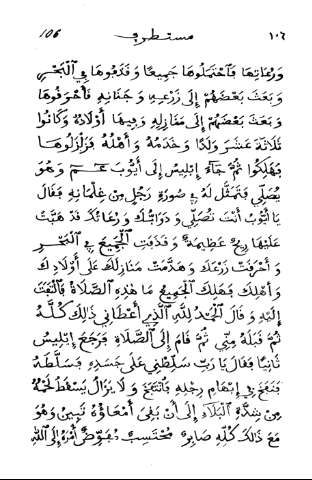 106 مستطرف ١٠٦
وَرُعَاتِهَا فَاحْتَمَلُوهَا جَمِيعًا وَقَذَفُوهَا فِي الْبَحْرِ
وَبَعَثَ بَعْضَهُمْ إِلَى زَرْعِهِ وَجَنَانِهِ فَأَحْرَقُوهَا
وَبَعَثَ بَعْضَهُمْ إِلَى مَنَازِلِهِ وَفِيهَا أَوْلَادُهُ وَكَانُوا
ثَلَاثَةَ عَشَرَ وَلَدًا وَخَدَمُهُ وَأَهْلُهُ فَزَلْزَلُوهَا
فَهَلَكُوا ثُمَّ جَاءَ إِبْلِيسُ إِلَى أَيُّوبَ عـم وَهُوَ
يُصَلِّي فَتَمَثَّلَ لَهُ فِي صُورَةِ رَجُلٍ مِنْ غِلْمَانِهِ فَقَالَ
يَا أَيُّوبُ أَنْتَ تُصَلِّي وَدَوَابُّكَ وَرُعَاتُكَ قَدْ هَبَّتْ
عَلَيْهَا رِيحٌ عَظِيمَةٌ وَقَذَفَتِ الْجَمِيعَ فِي الْبَحْرِ
وَأُحْرِقَتْ زَرْعُكَ وَهُدِّمَتْ مَنَازِلُكَ عَلَى أَوْلَادِكَ
وَأَهْلِكَ فَهَلَكَ الْجَمِيعُ مَا هٰذِهِ الصَّلَاةُ فَالْتَفَتَ
إِلَيْهِ وَقَالَ الْحَمْدُ لِلّٰهِ الَّذِي أَعْطَانِي ذَالِكَ كُلَّهُ
ثُمَّ قَبِلَهُ مِنِّي ثُمَّ قَامَ إِلَى الصَّلَاةِ فَرَجَعَ إِبْلِيسُ
ثَانِيًا فَقَالَ يَا رَبِّ سَلِّطْنِي عَلَى جَسَدِهِ فَسَلَّطَهُ
فَنَفَخَ فِي إِبْهَامِ رِجْلِهِ فَانْتَفَخَ وَلَا يَزَالُ يَسْقُطُ لَحْمُهُ
مِنْ شِدَّةِ الْبَلَاءِ إِلَى أَنْ بَقِيَ أَمْعَاؤُهُ تَبِينُ وَهُوَ
مَعَ ذَالِكَ كُلِّهِ صَابِرٌ مُحْتَسِبٌ مُفَوِّضٌ أَمْرَهُ إِلَى اللّٰهِ